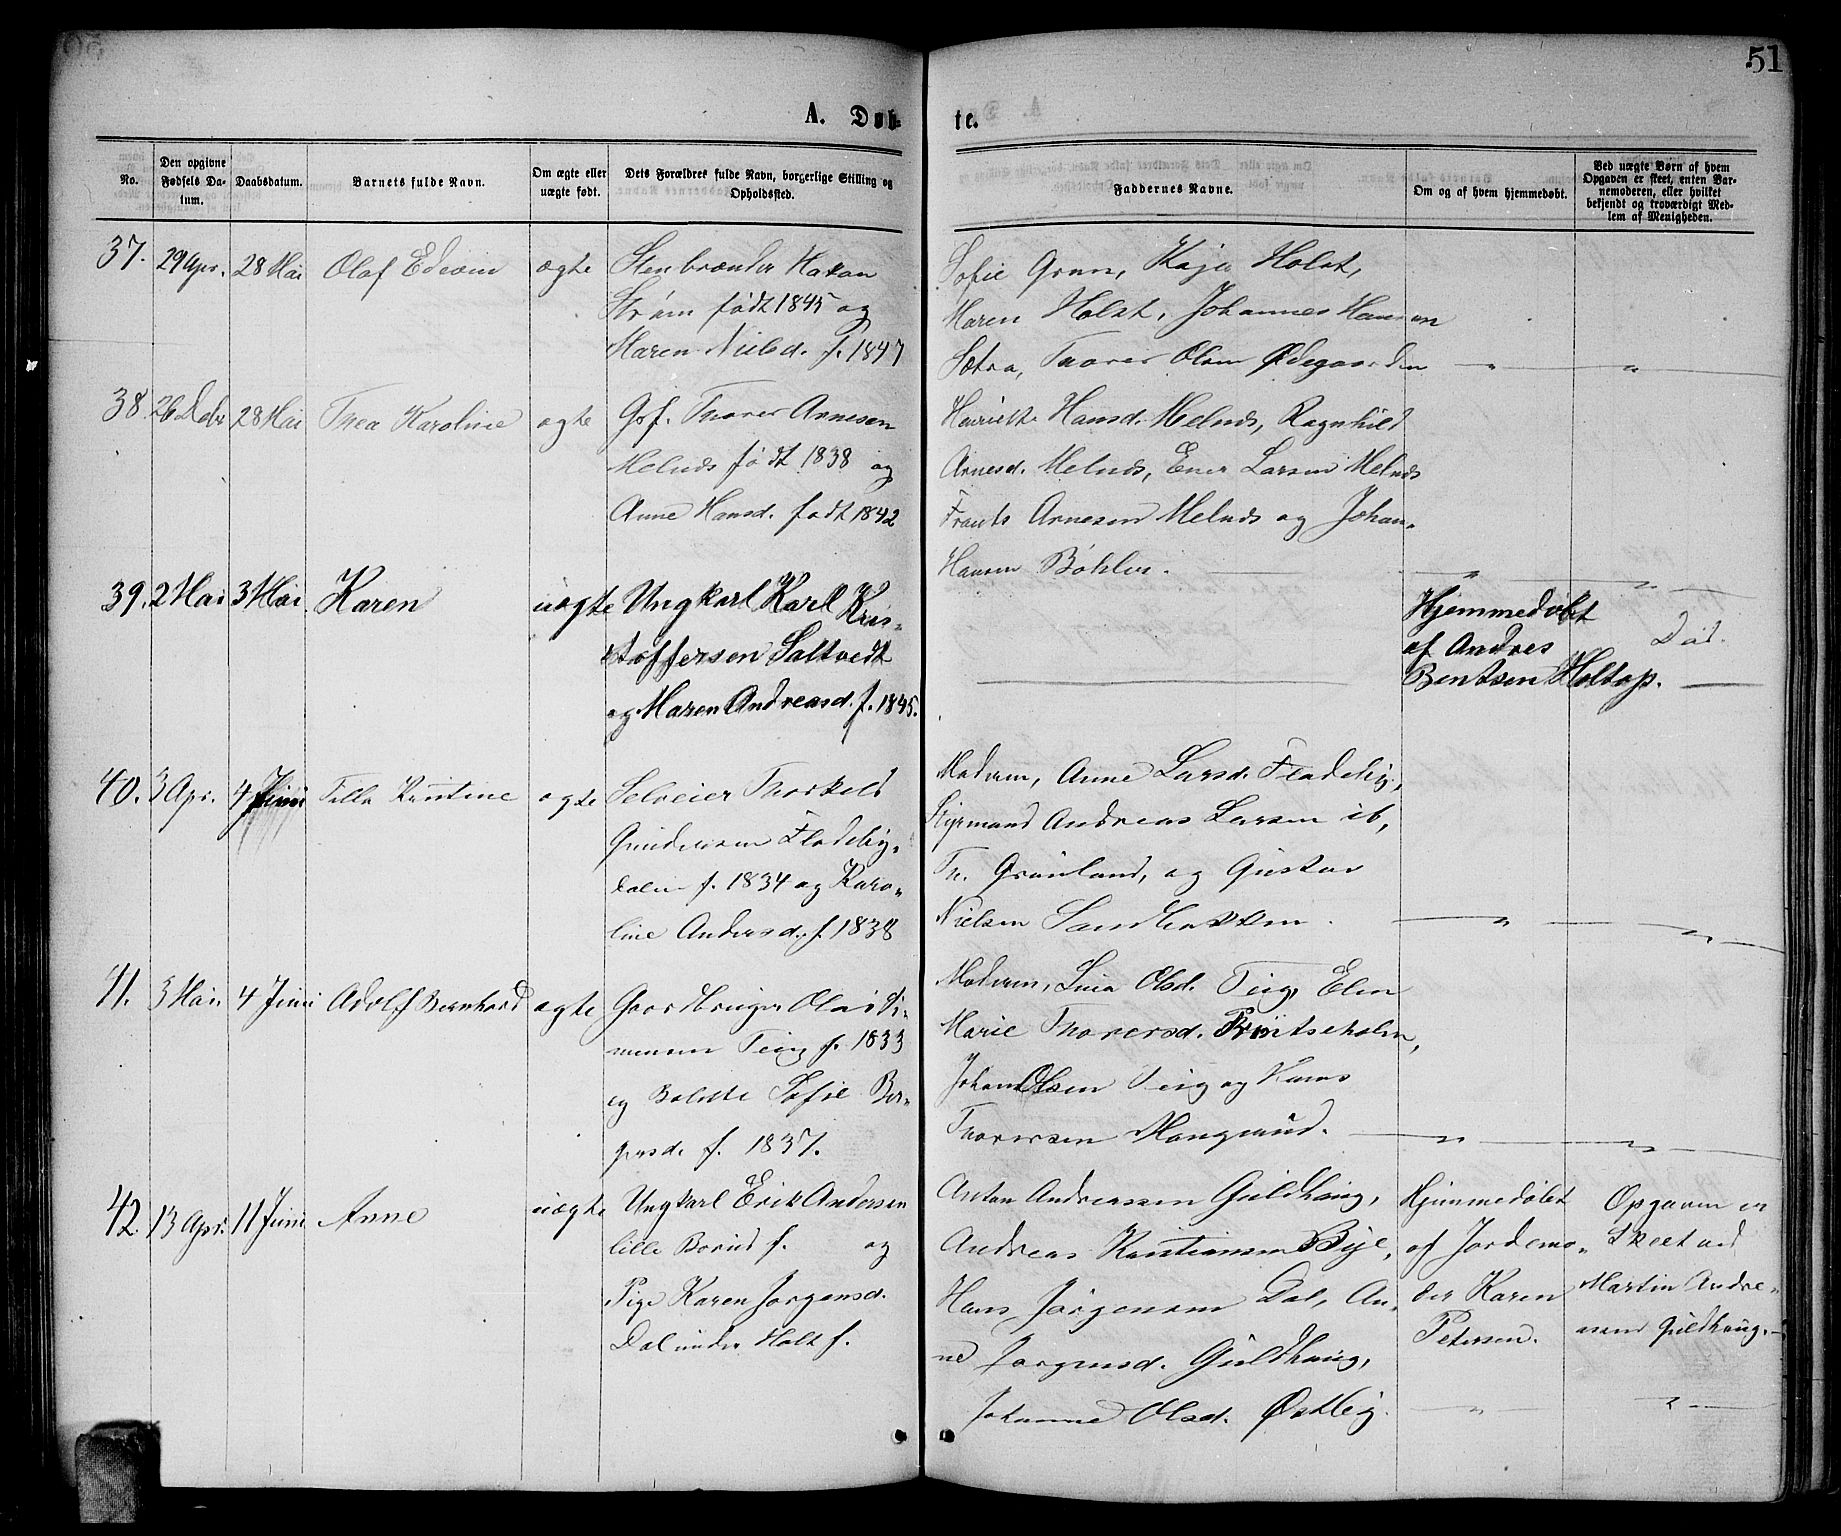 51
A. Døb-
te.
No.
Den opgivne
Fødsels Da-
tum.
Daabsdatum.
Barnets fulde Navn.
Om ægte eller
uægte født.
Dets Forældres fulde Navn, borgerlige Stilling og
Opholdssted.
Faddernes Navne.
Om og af hvem hjemmedøbt.
Ved uægte Børn af hvem
Opgaven er skeet, enten Bar-
nemoderen, eller hvilket
bekjendt og troværdigt Med-
lem af Menigheden.
37.
29 Apr.
28 Mai
Olaf Edevin
ægte
Stenbrænder Hakan
Strøm født 1845 og
Maren Nielsd. f. 1847
Sofie Gran, Kaja Holst,
Maren Holst, Johannes Hansen
Sætra, Thorer Olsen Ødegaarden
38.
26 Debr
28 Mai
Thea Karoline
ægte
Gsf. Thorer Arnesen
Melnds født 1838 og
Anne Hansd. født 1842
Henriette Hansd. Melnds, Ragnhild
Arnesd. Melnds, Ener Larsen Melnds
Frants Arnesen Melnds og Johan
Hansen Bøhler.
39.
2 Mai
3 Mai
Karen
uægte
Ungkarl Karl Kris-
toffersen Saltvedt
og Maren Andreasd. f. 1845.
Hjemmedøbt
af Andres
Bentsen Holtop.
Død.
40.
3 Apr.
4 Juni
Tilla Kristine
ægte
Selveier Thorkild
Gundersen Fladeby-
dalen f. 1834 og Karo-
line Andersd. f. 1838
Moderen, Anne Larsd. Fladeby,
Styrmand Andreas Larsen ib,
Th. Grønland, og Gustav
Nielsen Sandbakken.
41.
3 Mai.
4 Juni
Adolf Bernhard
ægte
Gaardbruger Ola Si-
mensen Teig f. 1833
og Bolette Sofie Ber-
gersd. f. 1837.
Moderen, Lina Olsd. Teig, Elen
Marie Thorersd. Prøitseholm,
Johan Olsen Teig og Hans
Thorersen Mangrud.
42.
13 Apr.
11 Juni
Anne
uægte
Ungkarl Erik Andersen
lille Borud f. og
Pige Karen Jørgensd.
Dal under Holt f.
Anton Andreassen Guldhaug,
Andreas Kristiansen Bye,
Hans Jørgensen Dal, An-
ne Jørgensd. Guldhaug,
Johanne Olsd. Østby.
Hjemmedøbt
af Jordemo-
der Karen
Petersen.
Opgaven er
skeet ved
Martin Andre-
asen Guldhaug.